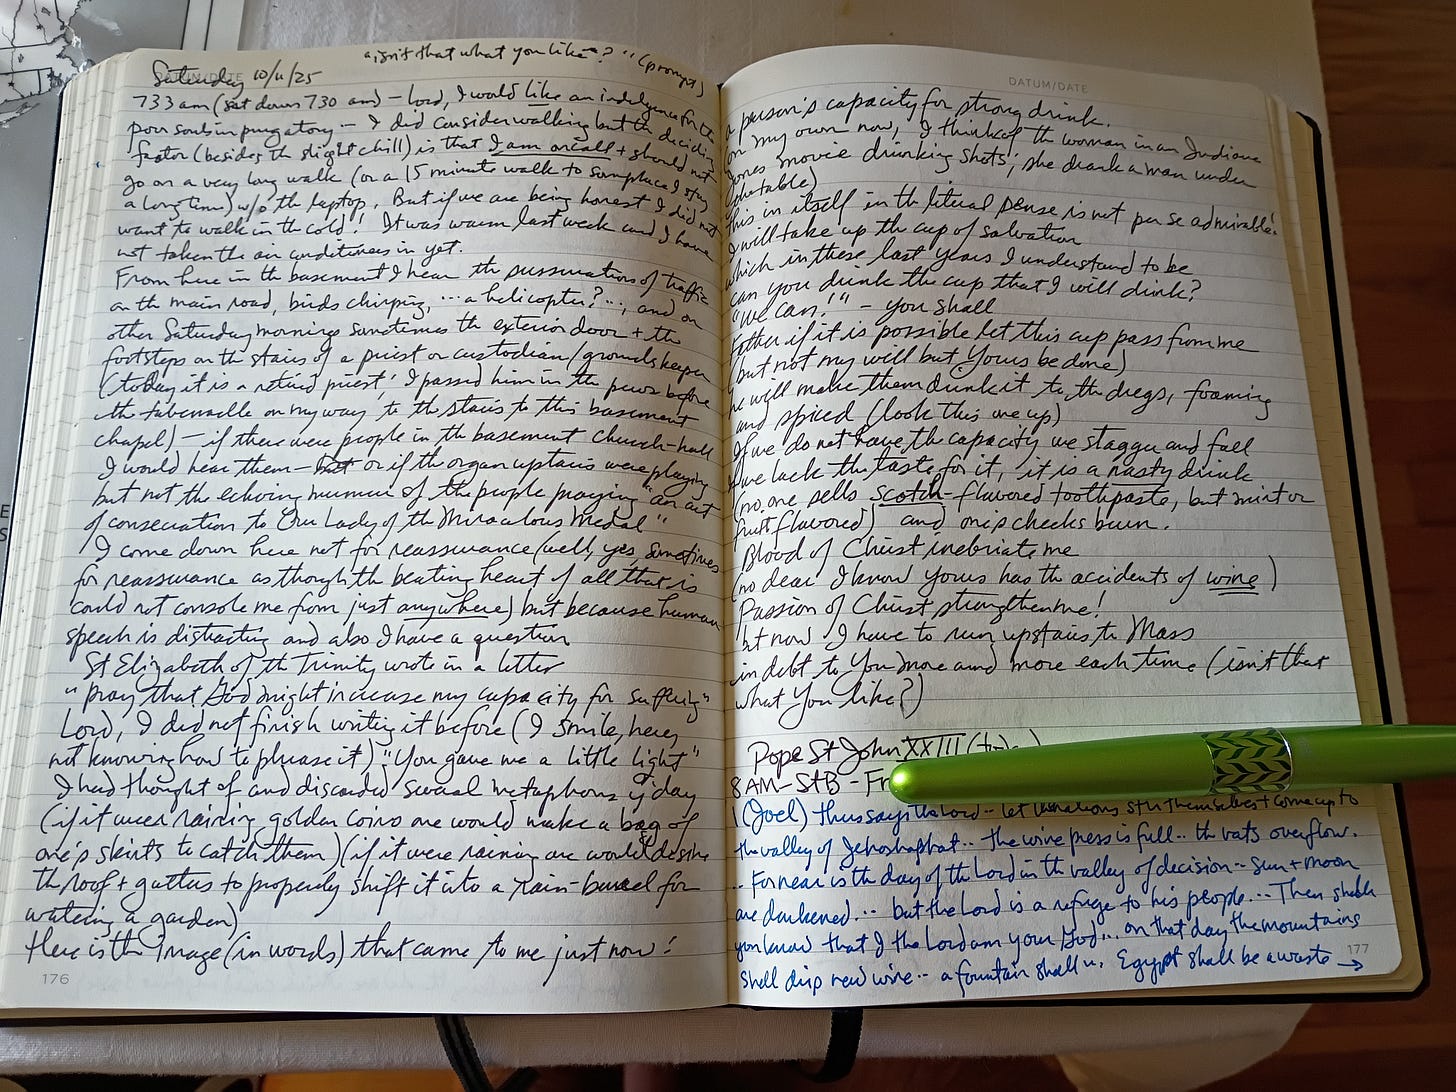 "isn't that what you like?" (prompt)
Saturday 10/11/25
733 am (sat down 730 am) - Lord, I would like an indulgence for the
poor souls in purgatory - I did consider walking but the deciding
factor (besides the slight chill) is that I am on call + should not
go on a very long walk (or a 15 minute walk to someplace I stay
a long time) w/o the laptop. But if we are being honest I did not
want to walk in the cold! It was warm last week and I have
not taken the air conditioners in yet.
From here in the basement I hear the sussurations of traffic
on the main road, birds chirping, ... a helicopter? ..., and on
other Saturday mornings sometimes the exterior door + the
footsteps on the stairs of a priest or custodian/groundskeeper
(today it is a retired priest; I passed him in the pews before
the tabernacle on my way to the stairs to this basement
chapel) - if there were people in the basement church-hall
I would hear them - or if the organ upstairs were playing
but not the echoing murmur of the people praying "an act
of consecration to Our Lady of the Miraculous Medal"
I come down here not for reassurance (well, yes, sometimes
for reassurance as though the beating heart of all that is
could not console me from just anywhere) but because human
speech is distracting and also I have a question
St Elizabeth of the Trinity wrote in a letter
"pray that God might increase my capacity for suffering"
Lord, I did not finish writing it before (I smile, here,
not knowing how to phrase it) "You gave me a little light"
I had thought of and discarded several metaphors yday
(if it were raining golden coins one would make a bag of
one's skirts to catch them) (if it were raining one would desire
the roof + gutters to properly shift it into a rain-barrel for
watering a garden)
Here is the image (in words) that came to me just now!
176
DATUM/DATE
a person's capacity for strong drink.
(on my own now, I think of the woman in an Indiana
Jones movie drinking shots; she drank a man under
the table)
this in itself in the literal sense is not per se admirable!
I will take up the cup of salvation
which in these last years I understand to be
can you drink the cup that I will drink?
"We can!" - you shall
Father if it is possible let this cup pass from me
(but not my will but Yours be done)
he will make them drink it to the dregs, foaming
and spiced (look this one up)
If we do not have the capacity we stagger and fall
if we lack the taste for it, it is a nasty drink
(no one sells scotch-flavored toothpaste, but mint or
fruit flavored) and one's cheeks burn.
Blood of Christ inebriate me
(no dear I know Yours has the accidents of wine)
Passion of Christ strengthen me!
but now I have to run upstairs to Mass
in debt to You more and more each time (isn't that
what You like?)
Pope St John XXIII
8 AM - StB - Fr
1 (Joel) thus says the Lord .. let the nations stir themselves + come up to
the valley of Jehoshaphat .. the wine press is full .. the vats overflow.
.. For near is the day of the Lord in the valley of decision .. sun + moon
are darkened ... but the Lord is a refuge to his people ... Then shall
you know that I the Lord am your God ... on that day the mountains
shall drip new wine .. a fountain shall .. Egypt shall be a waste →
177